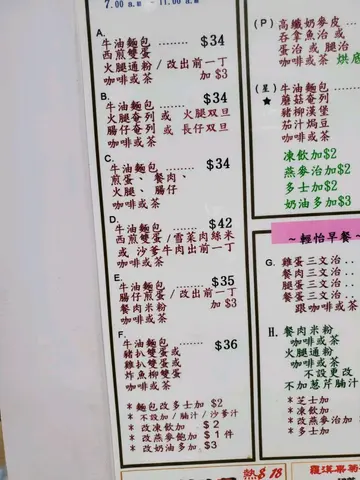 7.00 a.m - 11.00 a.m
A.
牛油麵包 ........ $34
西煎雙蛋
火腿通粉 / 改出前一丁
咖啡或茶 加 $3
B.
牛油麵包 ........ $34
火腿奄列 或 火腿双旦
腸仔奄列 或 長仔双旦
咖啡或茶
C.
牛油麵包 ....... $34
煎蛋、餐肉、
火腿、腸仔
咖啡或茶
D.
牛油麵包 ....... $42
西煎雙蛋/雪菜肉絲米
或 沙爹牛肉出前一丁
咖啡或茶
E.
牛油麵包 ....... $35
腸仔煎蛋 / 改出前一丁
餐肉米粉 加 $3
咖啡或茶
F.
牛油麵包 ....... $36
豬扒雙蛋或
雞扒雙蛋或
炸魚柳雙蛋
咖啡或茶
* 麵包改多士加 $2
* 不設加 / 腩汁 / 沙爹汁
* 改凍飲加 $ 2
* 改燕麥飽加 $ 1 件
* 改奶油多加 $3
(P) 高纖奶麥皮
吞拿魚治或
蛋治 或 腿治
咖啡或茶 烘底
(星) 牛油麵包
★ 蘑菇奄列
豬柳漢堡
茄汁焗豆
咖啡或茶
凍飲加$2
燕麥治加$2
多士加$2
奶油多加$3
~ 輕怡早餐 ~
G. 雞蛋三文治 . .
餐肉三文治 . .
腿蛋三文治 . .
餐蛋三文治 . .
跟咖啡或茶
H. 餐肉米粉
咖啡或茶
火腿通粉
咖啡或茶
不設更改
不加葱芹腩汁
* 芝士加
* 凍飲加
* 改燕麥治加
* 多士加
熱$18